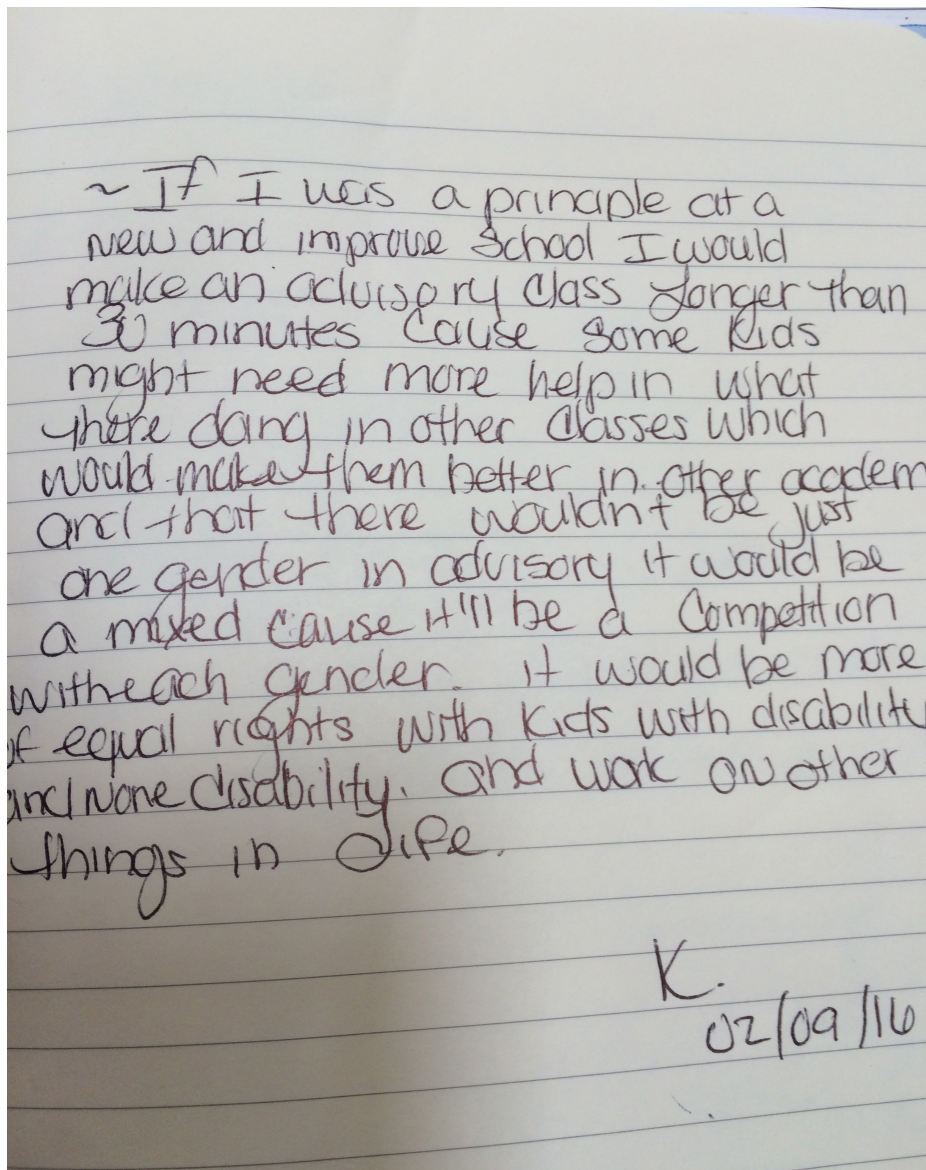 ~ If I was a principle at a
New and improve School I would
make an advisory class longer than
30 minutes cause some kids
might need more help in what
there doing in other classes which
would make them better in other academ
and that there wouldn't be just
one gender in advisory it would be
a mixed cause it'll be a competition
with each gender. it would be more
of equal rights with kids with disabilite
and None disability. and work on other
things in life.
K.
02/09/16